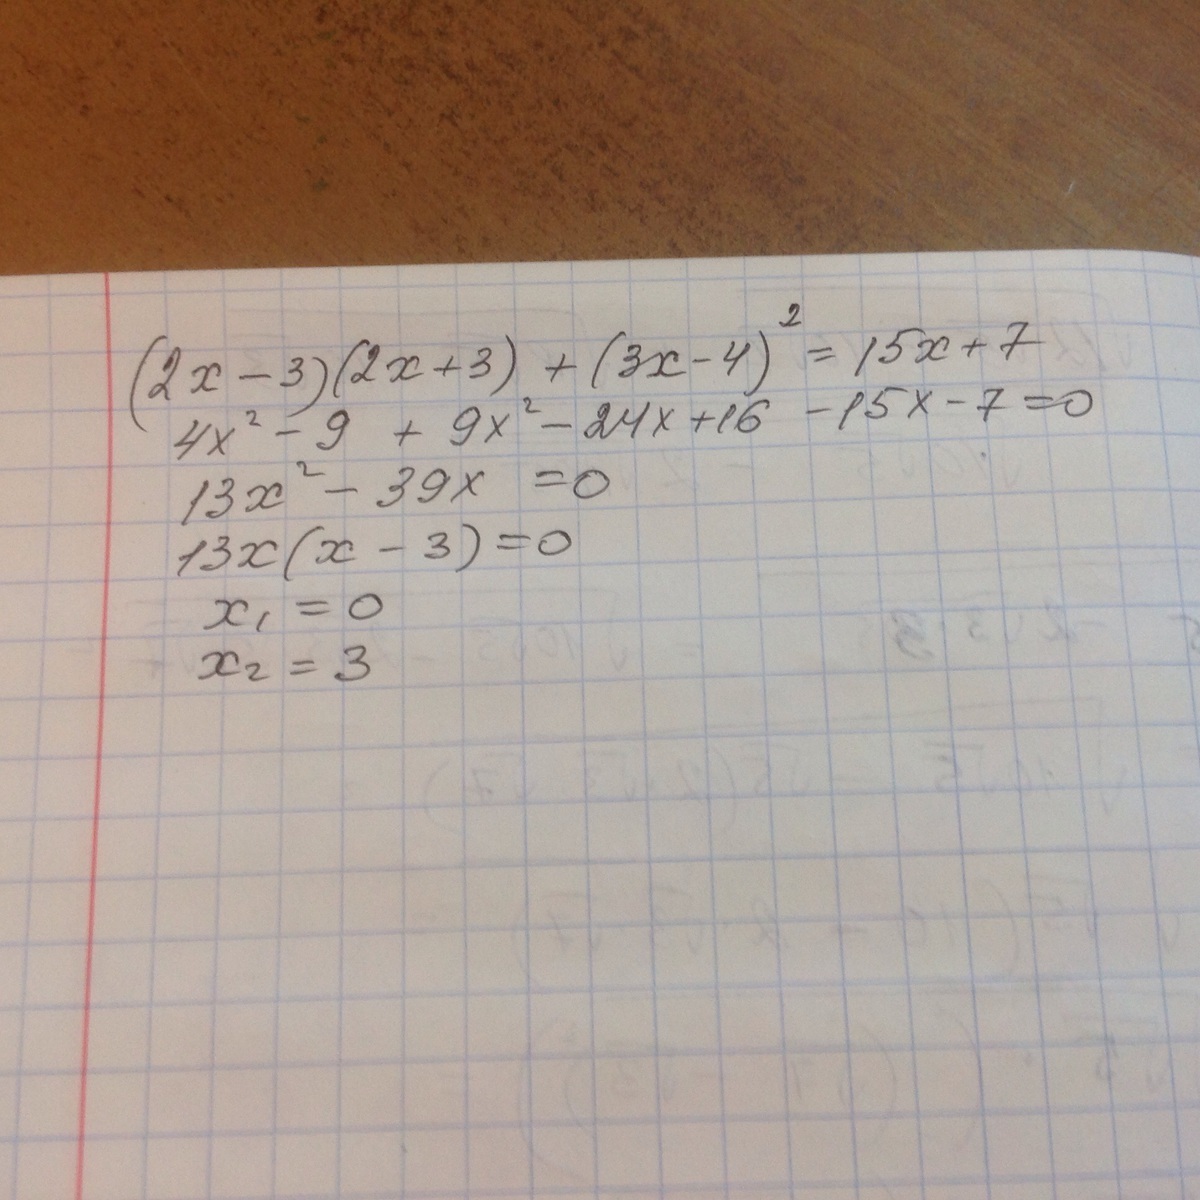 (2x - 3)(2x + 3) + (3x - 4)² = 15x + 7
4x² - 9 + 9x² - 24x + 16 - 15x - 7 = 0
13x² - 39x = 0
13x(x - 3) = 0
x₁ = 0
x₂ = 3